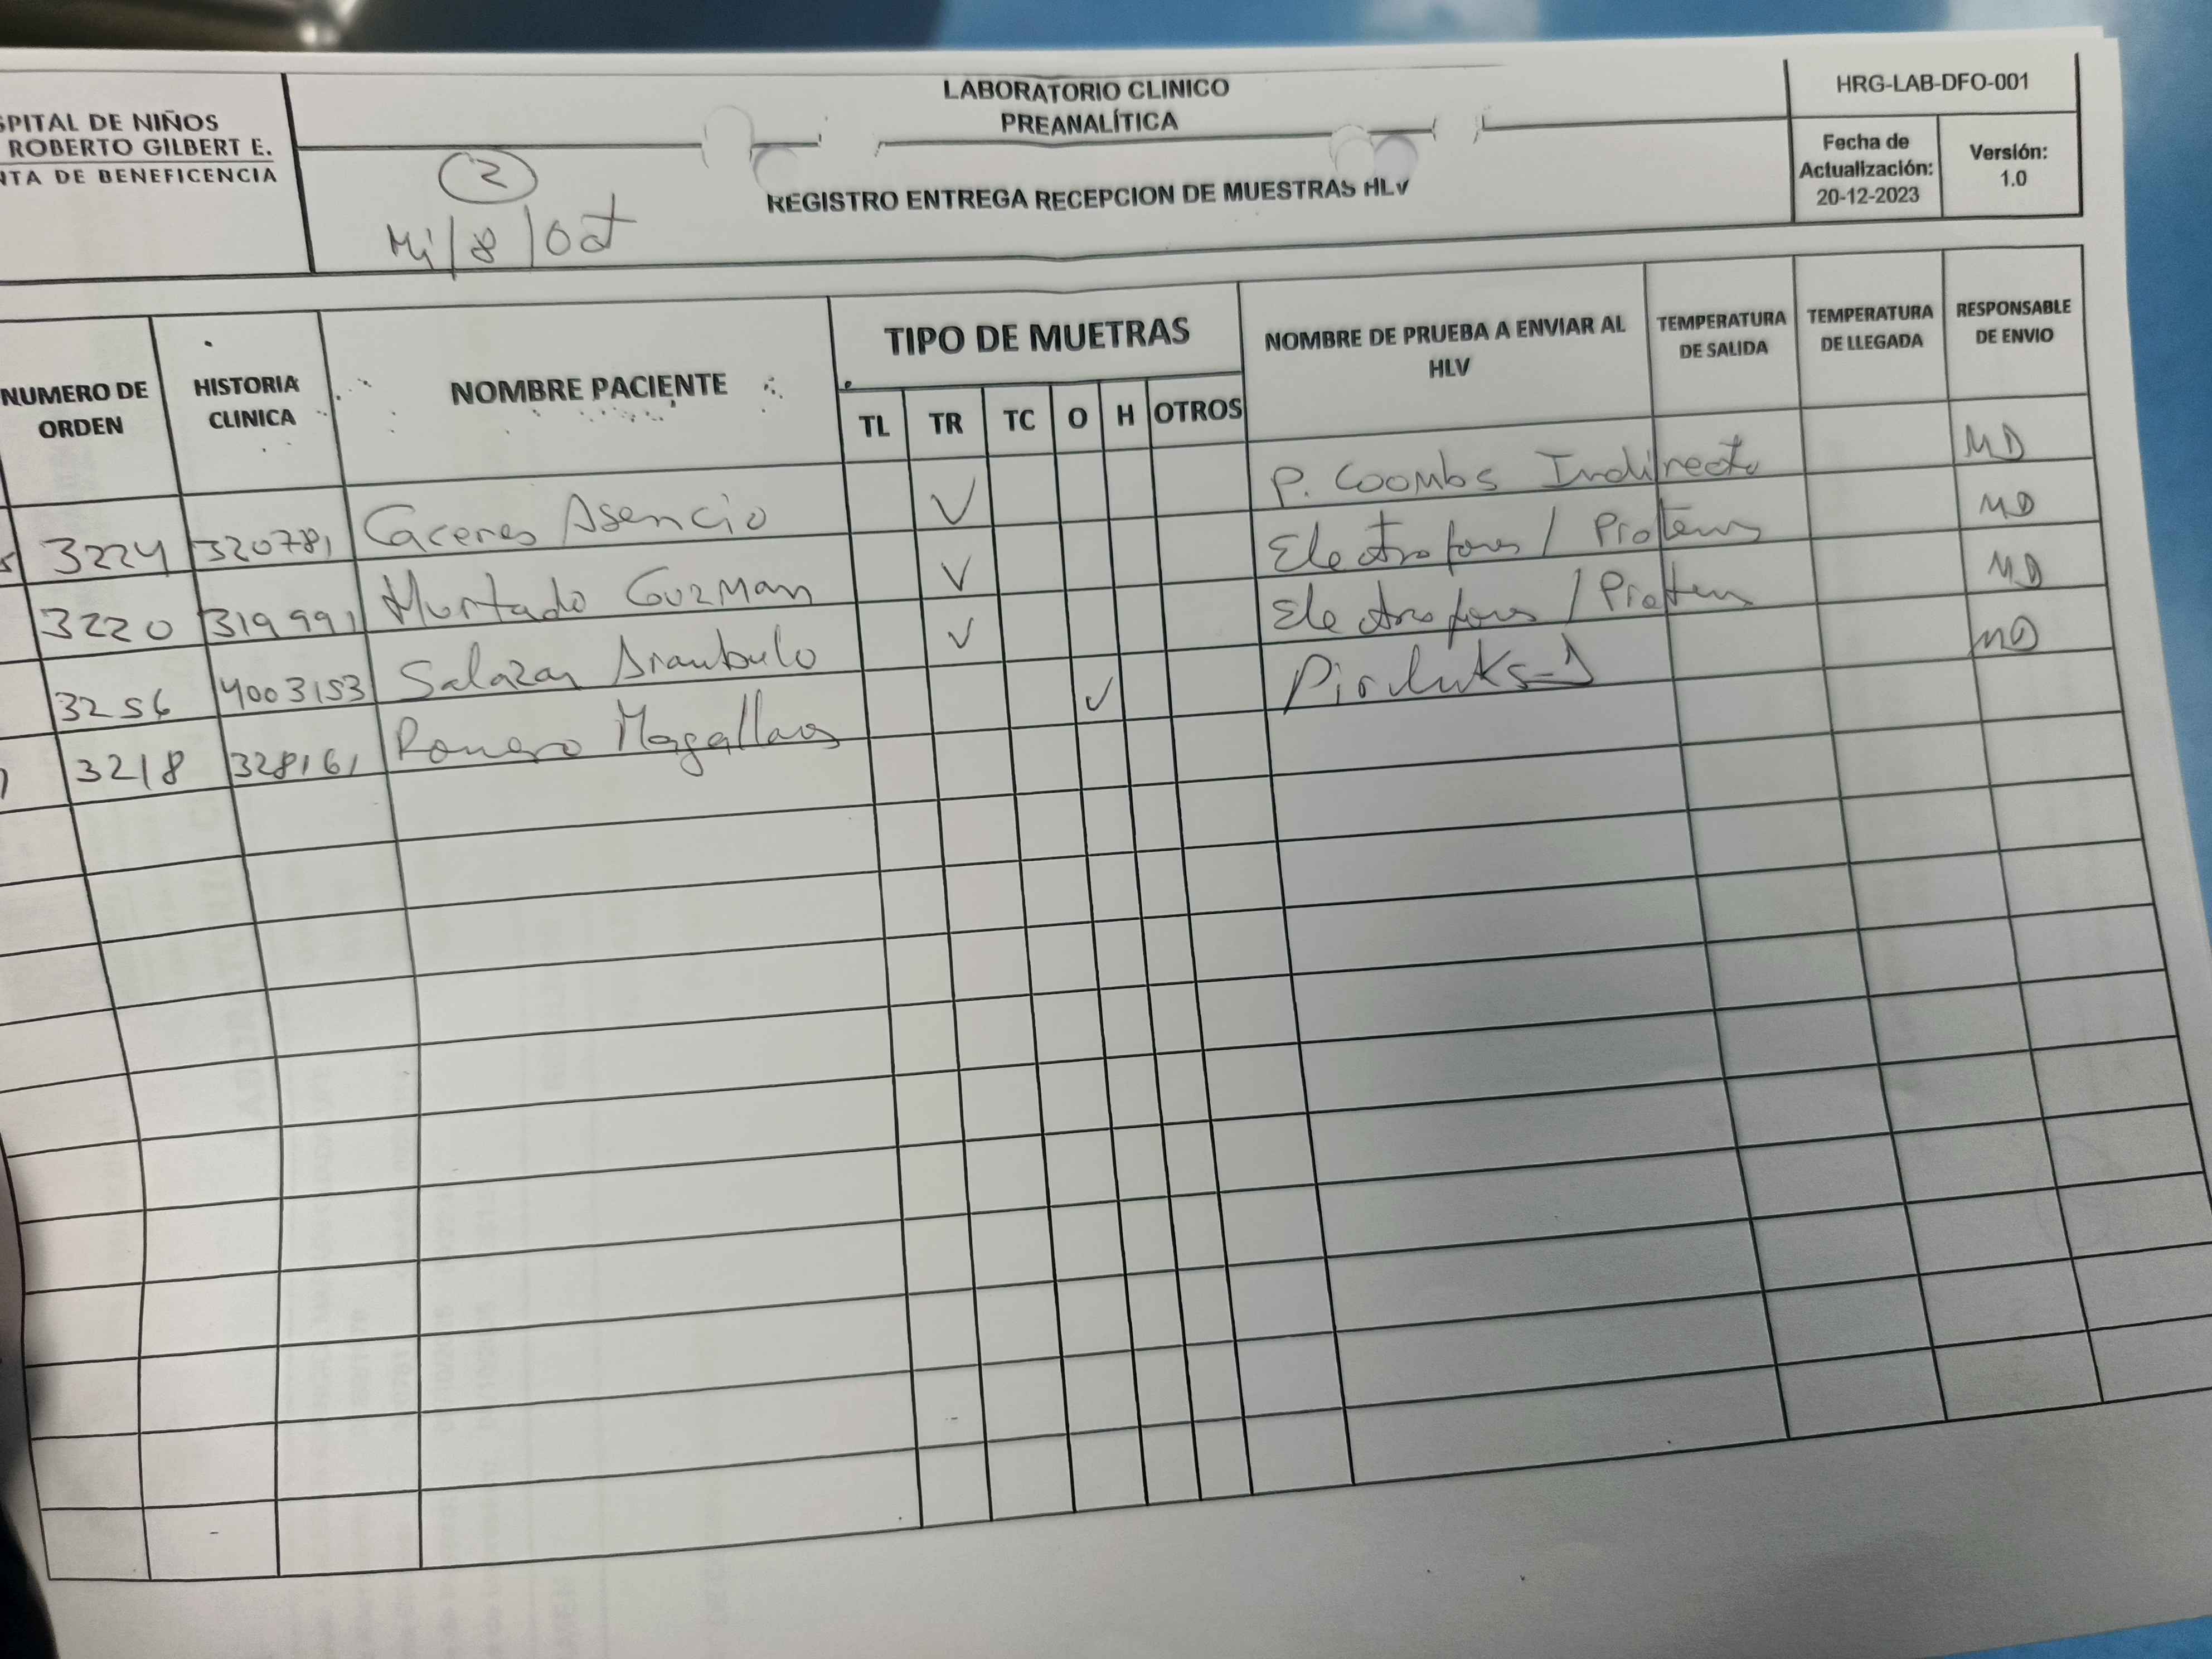 LABORATORIO CLINICO
PREANALÍTICA
HRG-LAB-DFO-001
SPITAL DE NIÑOS
ROBERTO GILBERT E.
NTA DE BENEFICENCIA
2
Mi/8/Oct
REGISTRO ENTREGA RECEPCION DE MUESTRAS HLV
Fecha de Actualización: 20-12-2023
Versión: 1.0
NUMERO DE ORDEN HISTORIA CLINICA NOMBRE PACIENTE TIPO DE MUETRAS NOMBRE DE PRUEBA A ENVIAR AL HLV TEMPERATURA DE SALIDA TEMPERATURA DE LLEGADA RESPONSABLE DE ENVIO
TL TR TC O H OTROS
3224 320781 Caceres Asencio ✓ P. Coombs Indirecto MD
3220 319991 Hurtado Guzman ✓ Electrofores / Proteins MD
3256 4003153 Salazar Arambulo ✓ Electrofores / Protein MD
3218 328161 Romero Magallanes ✓ MD